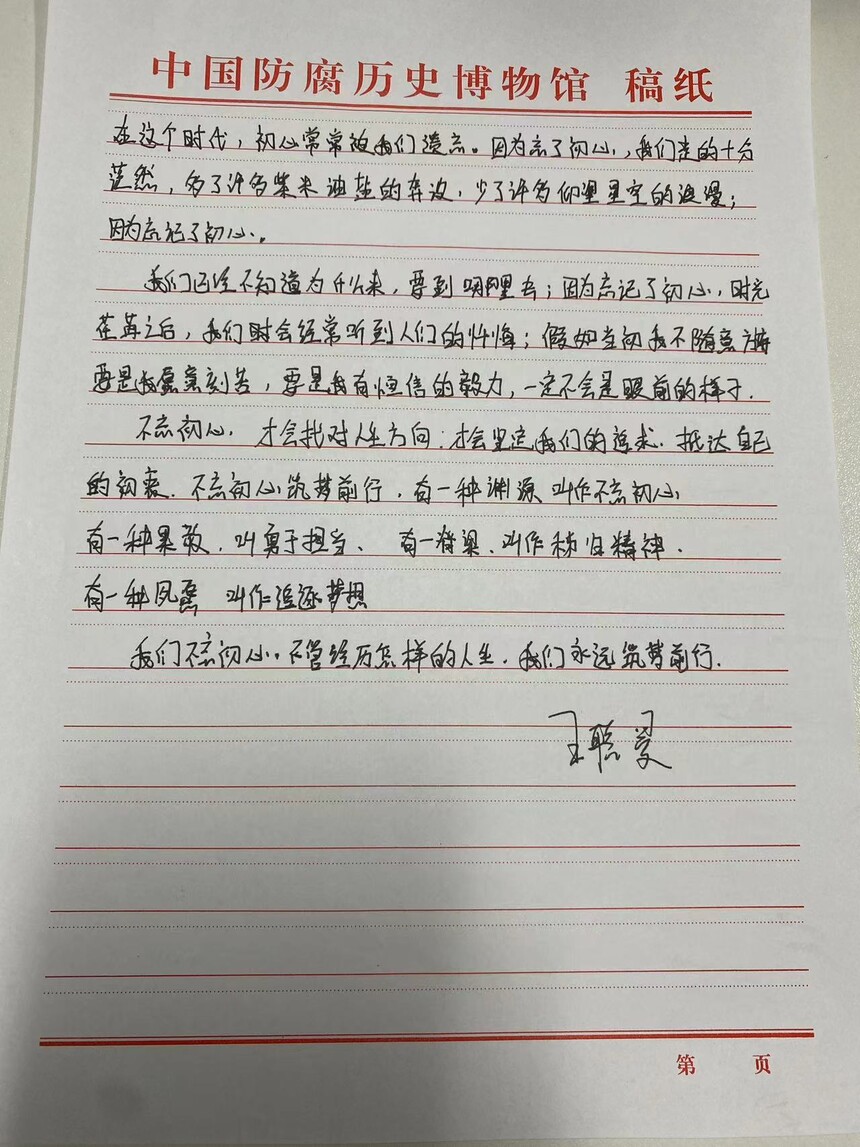 中国防腐历史博物馆 稿纸
在这个时代，初心常常被我们遗忘。因为忘了初心，我们走的十分
茫然，多了许多柴米油盐的奔波，少了许多仰望星空的浪漫；
因为忘记了初心。
我们已经不知道为什么来，要到哪里去；因为忘记了初心，时光
荏苒之后，我们时会经常听到人们的忏悔；假如当初我不随意
要是我刻苦，要是我有恒信的毅力，一定不会是眼前的样子.
不忘初心，才会找对人生方向；才会坚定我们的追求.抵达自己
的初衷.不忘初心筑梦前行，有一种渊源 叫作不忘初心
有一种果敢，叫勇于担当、 有一脊梁、叫作秭归精神.
有一种夙愿 叫作追逐梦想
我们不忘初心。不管经历怎样的人生.我们永远筑梦前行.
王聪
第 页